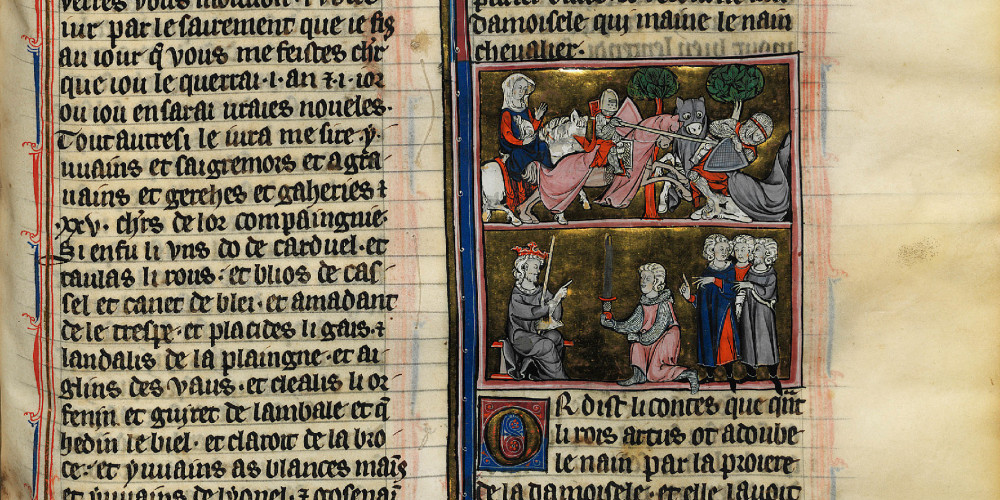 iur par le sairement que ie fis
au iour q̄ vous me feistes ch̄r
que iou le querrai ·i· an ⁊ ·i· ior
ou iou en sarai uraies noueles·
Tout autresi le iura me sire ·y·
uuains et saigremors et agra
uains et gerehes et gaheries ⁊
·xxv· ch̄rs de lor compaingnie·
Si en fu li vns do de carduel· et
taulas li rous· et blios de cas
sel et canet de blei· et amadant
de le crespe· et placides li gais· ⁊
landalis de la plaingne· et ai
glins des vaus· et clealis li or
fenin et guiret de lambale et q̄
hedin le biel· et clarot de la bro
ce· et yuuains as blances mains
et yuuains de lyonel·
damoisele qui maine le nain
cheualier·
OR dist li contes que qn̄t
li rois artus ot adoube
le nain par la proiere
de la damoisele· et elle lauoit